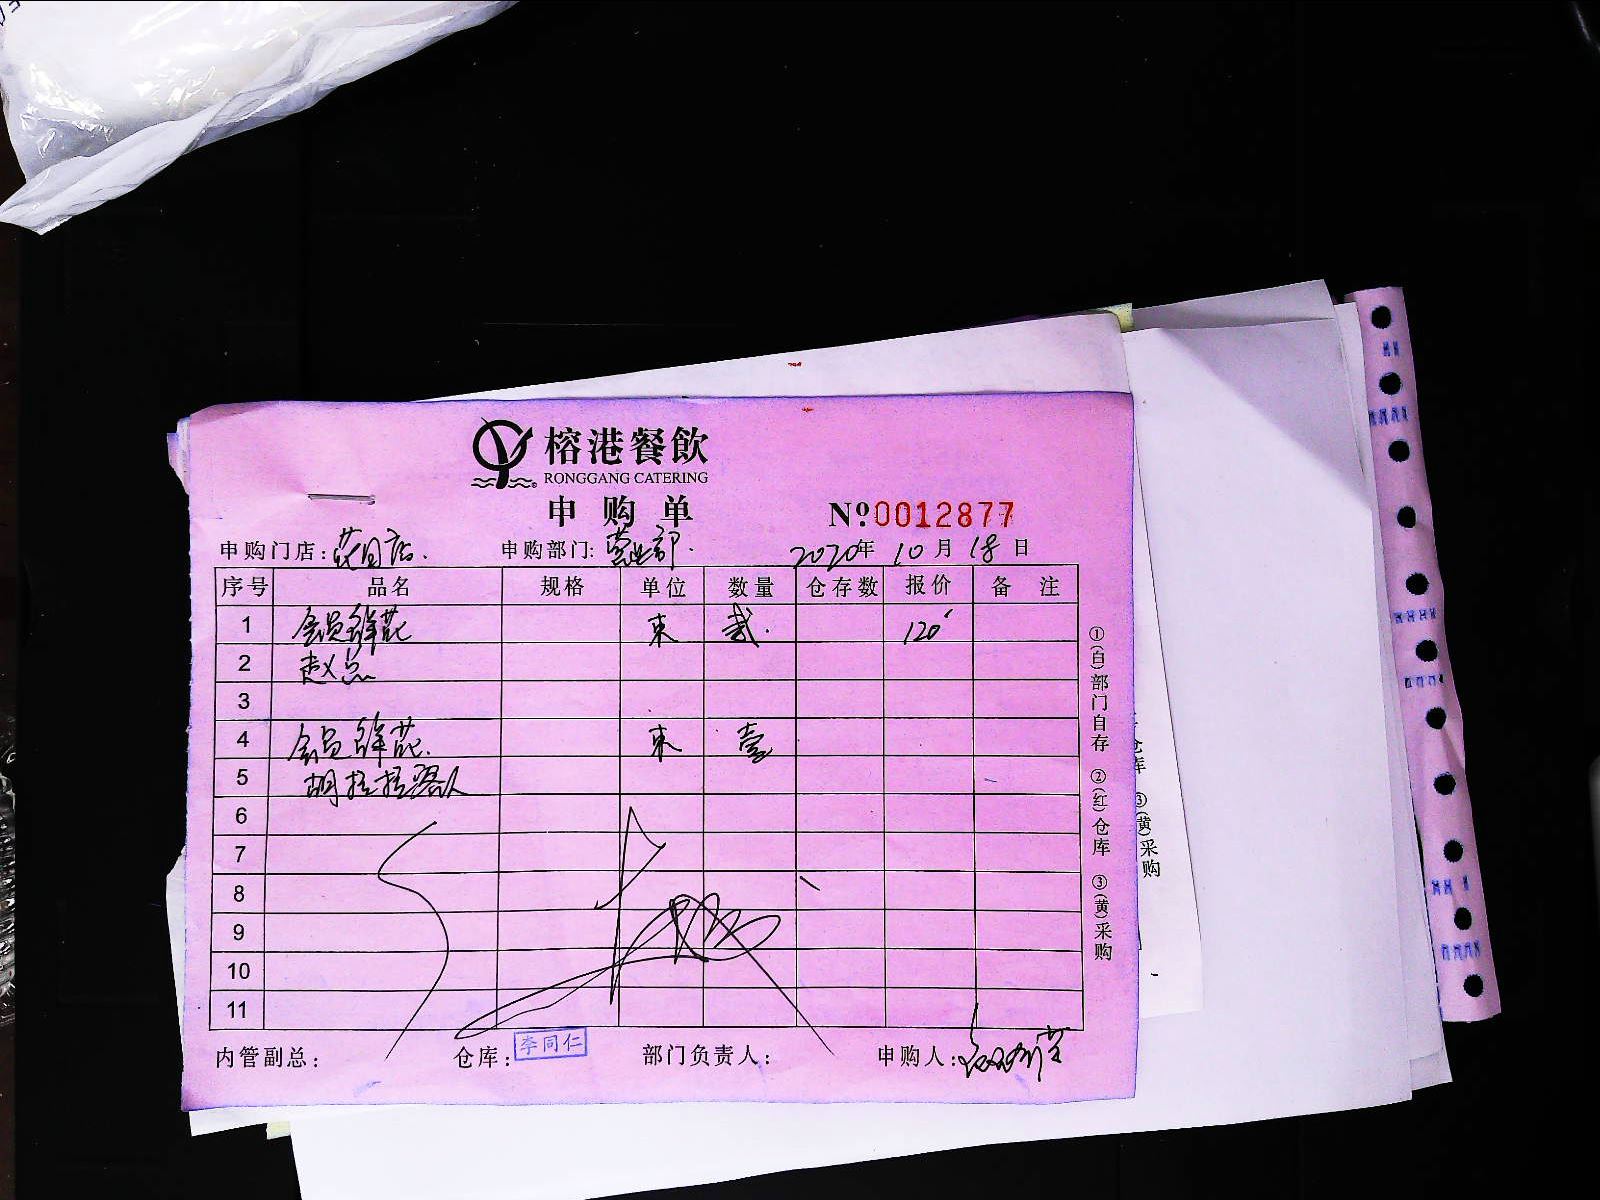 榕港餐飲
RONGGANG CATERING
申购单
№0012877
申购门店: 申购部门:营业部. 2020年10月18日
序号 品名 规格 单位 数量 仓存数 报价 备注
1 会员鲜花 束 贰. 120
2 赵总
3
4 会员鲜花. 束 壹
5 胡拉拉客人
6
7
8
9
10
11
内管副总: 仓库:李同仁 部门负责人: 申购人:
①(白)部门自存 ②(红)仓库 ③(黄)采购
仓库 ③(黄)采购